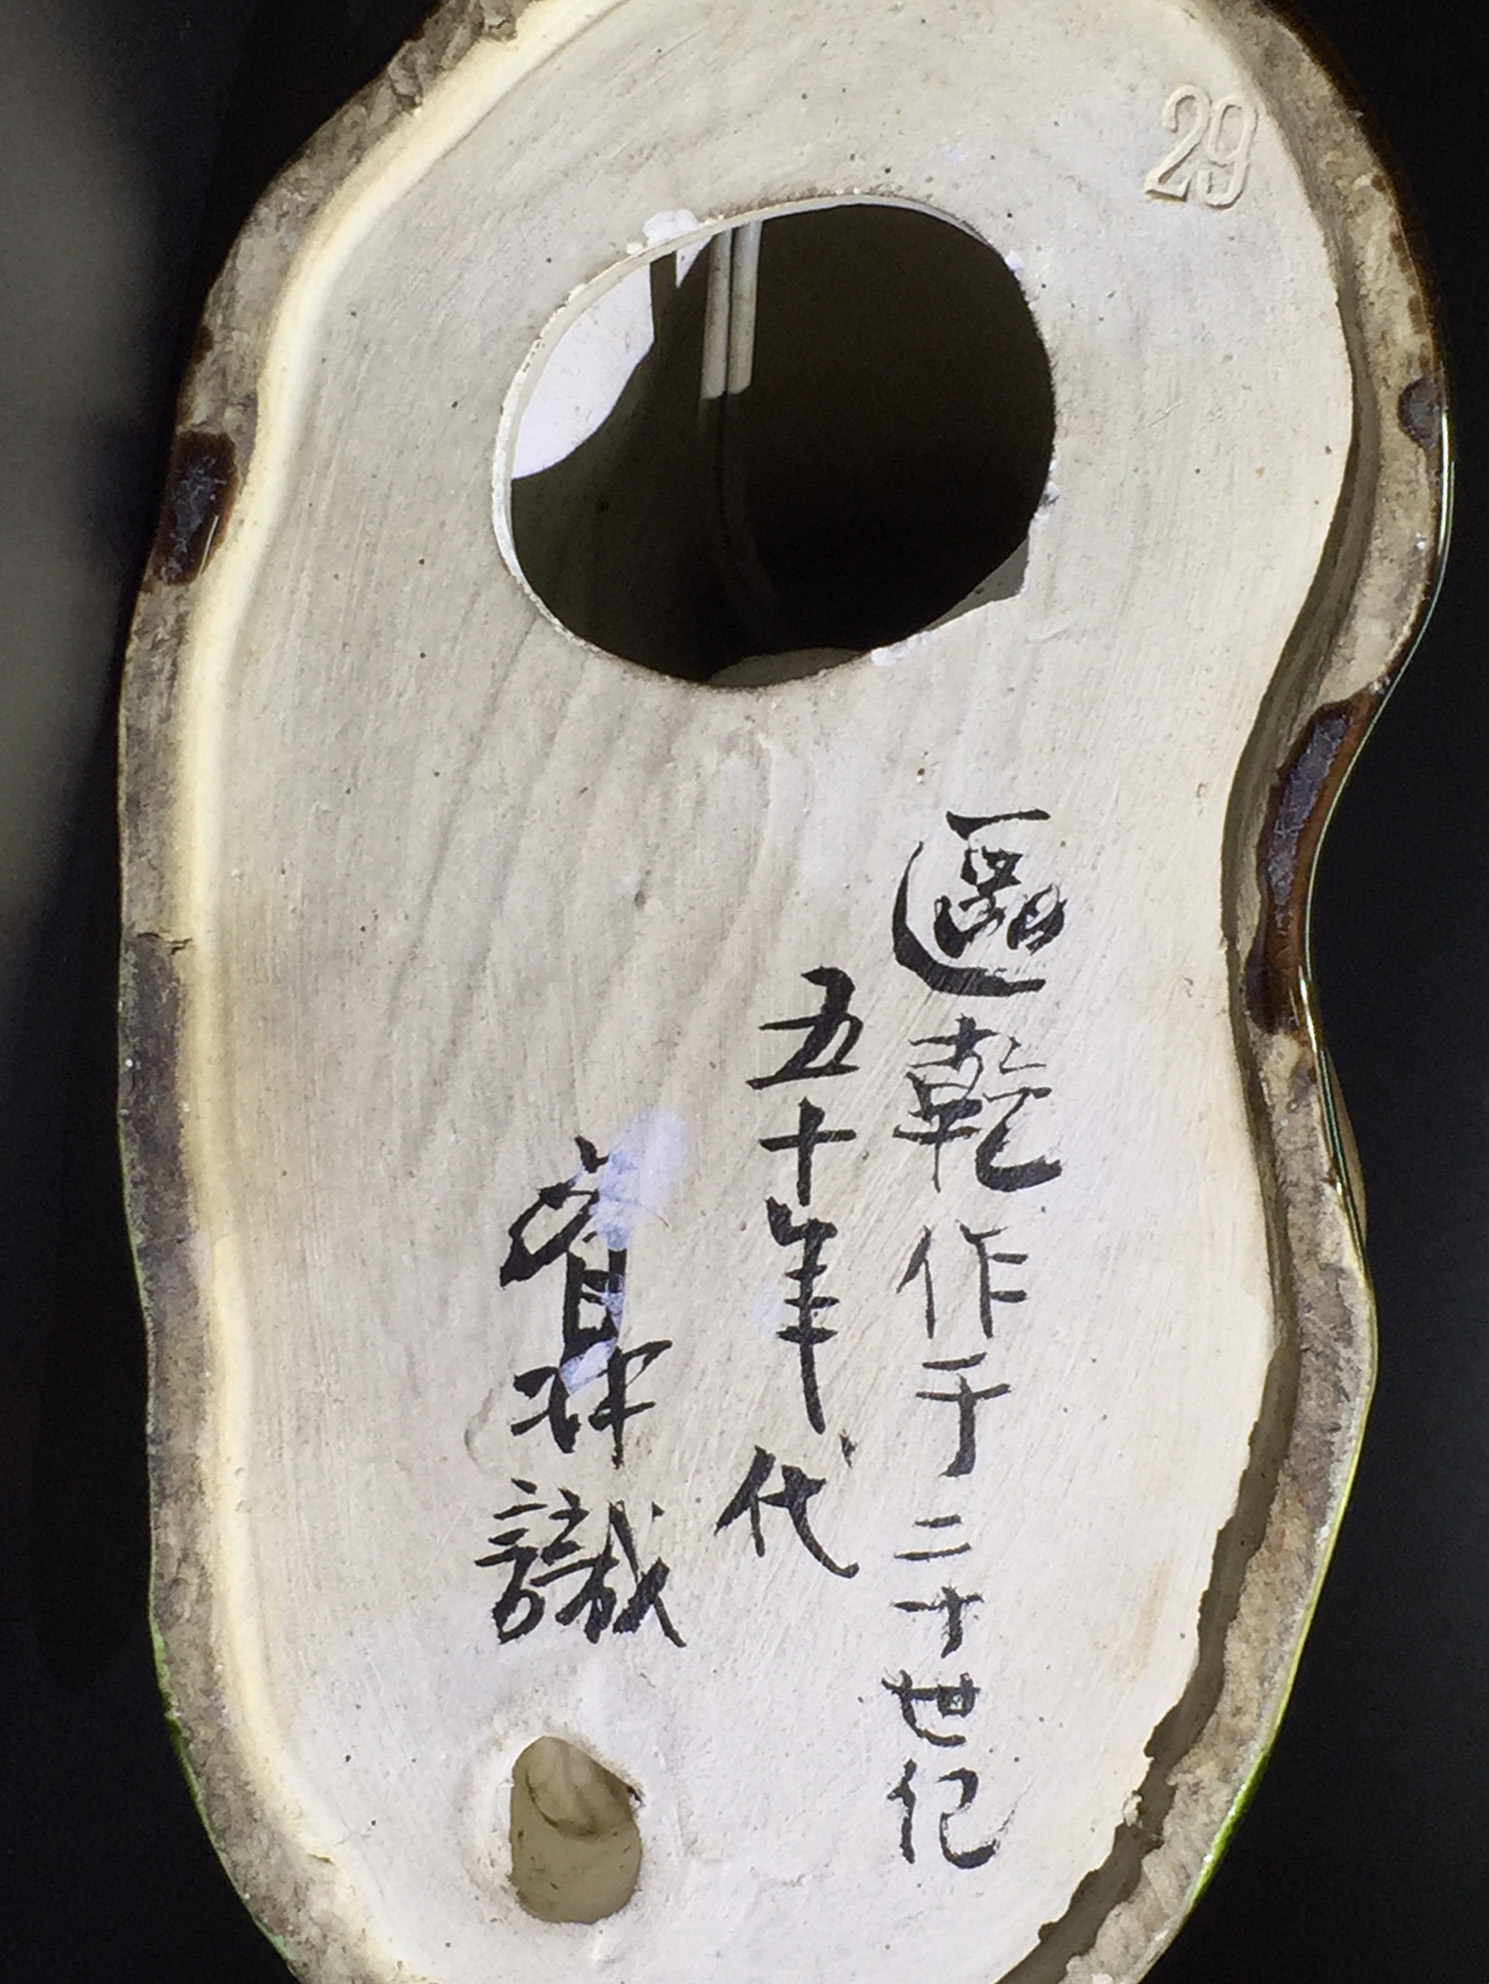 29
區乾作于二十世纪
五十年代
識